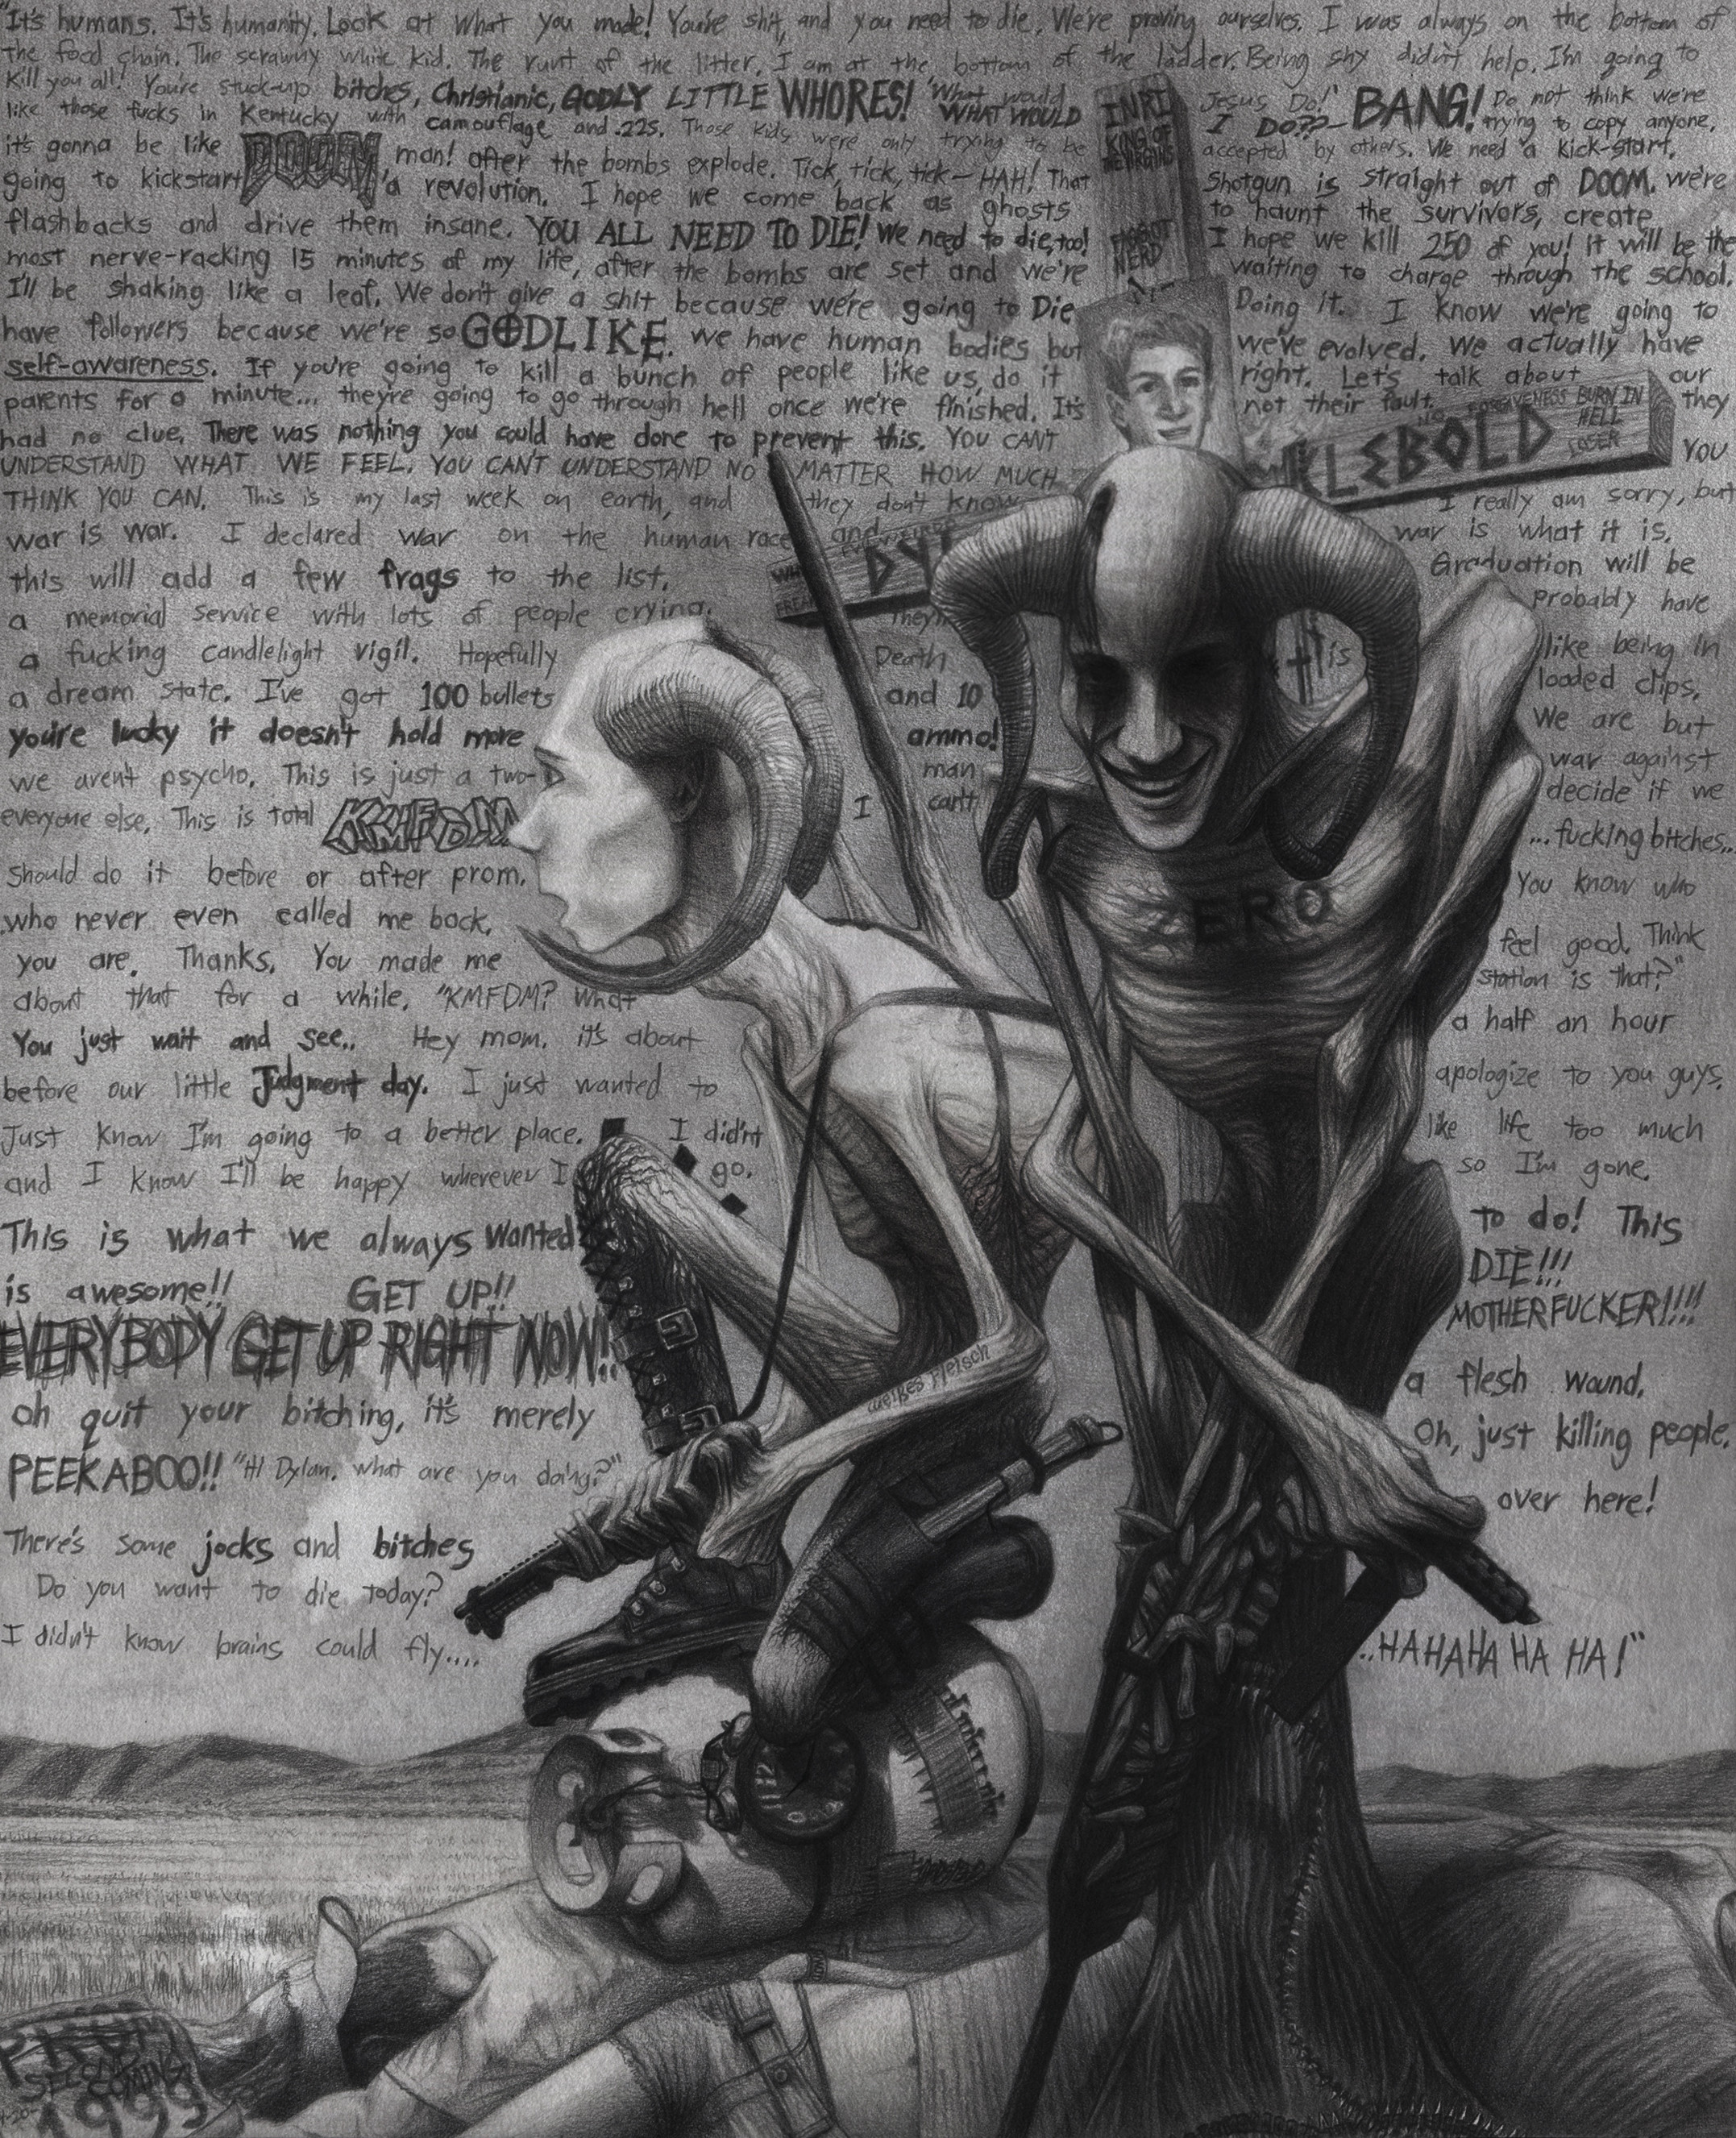 "It's humans. It's humanity. Look at what you made! You're shit, and you need to die. We're proving ourselves. I was always on the bottom of
the food chain. The scrawny white kid. The runt of the litter. I am at the bottom of the ladder. Being shy didn't help. I'm going to
kill you all! You're stuck-up bitches, Christianic, GODLY LITTLE WHORES! 'What would Jesus Do?' WHAT WOULD I DO??- BANG! Do not think we're trying to copy anyone,
like those fucks in Kentucky with camouflage and .22s. Those kids were only trying to be accepted by others. We need a kick-start,
it's gonna be like DOOM, man! after the bombs explode. Tick, tick, tick- HAH! That shotgun is straight out of DOOM. we're
going to kickstart a revolution. I hope we come back as ghosts to haunt the survivors, create
flashbacks and drive them insane. YOU ALL NEED TO DIE! We need to die, too! I hope we kill 250 of you! It will be the
most nerve-racking 15 minutes of my life, after the bombs are set and we're waiting to charge through the school.
I'll be shaking like a leaf. We don't give a shit because we're going to Die Doing it. I know we're going to
have followers because we're so GODLIKE. we have human bodies but we've evolved. We actually have
self-awareness. If you're going to kill a bunch of people like us, do it right. Let's talk about our
parents for a minute... they're going to go through hell once we're finished. It's not their fault. they
had no clue. There was nothing you could have done to prevent this. YOU CAN'T You
UNDERSTAND WHAT WE FEEL. YOU CAN'T UNDERSTAND NO MATTER HOW MUCH
THINK YOU CAN. This is my last week on earth, and they don't know I really am sorry, but
war is war. I declared war on the human race and war is what it is.
this will add a few frags to the list. Graduation will be
a memorial service with lots of people crying. They'll probably have
a fucking candlelight vigil. Hopefully Death is like being in
a dream state. I've got 100 bullets and 10 loaded clips.
you're lucky it doesn't hold more ammo! We are but
we aren't psycho. This is just a two-man war against
everyone else. This is total KMFDM I can't decide if we
should do it before or after prom. ...fucking bitches...
who never even called me back. You know who
you are. Thanks. You made me feel good. Think
about that for a while. "KMFDM? What station is that?"
You just wait and see.. Hey mom. it's about a half an hour
before our little Judgment day. I just wanted to apologize to you guys.
Just know I'm going to a better place. I didn't like life too much
and I know I'll be happy wherever I go. so I'm gone.
This is what we always wanted to do! This
is awesome!! GET UP!! DIE!!!
EVERYBODY GET UP RIGHT NOW!! MOTHERFUCKER!!!!
oh quit your bitching, it's merely a flesh wound.
PEEKABOO!! "Hi Dylan. what are you doing?" Oh, just killing people.
There's some jocks and bitches over here!
Do you want to die today?
I didn't know brains could fly.... ..HAHAHA HA HA!"
INRI
KING OF
NERD
KLEBOLD
FORGIVENESS BURN IN
HELL
LOSER
DY
ZERO
weißes fleisch
1999